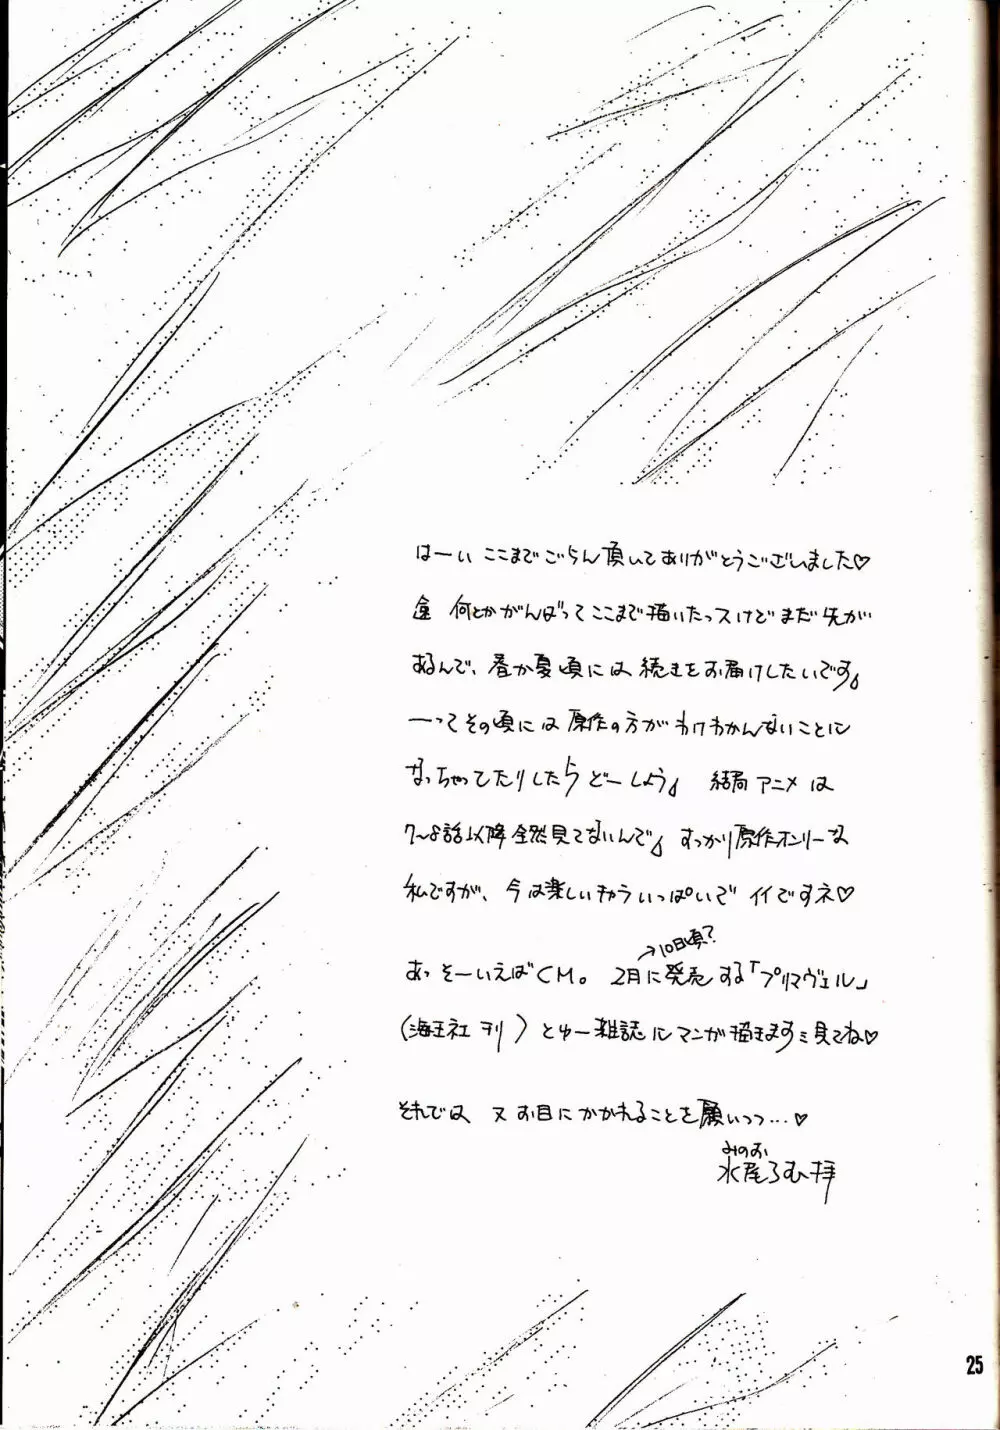 はーい ここまでごらん頂いてありがとうございました♡
何とかがんばってここまで描いたっスけどまだ先が
あるんで、春か夏頃には続きをお届けしたいです。
ーってその頃には原作の方がわけわかんないことに
なっちゃってたりしたらどーしよう。 結局アニメは
7〜8話以降全然見てないんで。すっかり原作オンリーな
私ですが、今は楽しいキャラいっぱいでイイですネ♡
→10日頃?
あっ そーいえばCM。 2月に発売する「プリマヴェール」
(海王社ヨリ) とゆー雑誌にマンガ描きますミ見てね♡
それでは 又お目にかかれることを願いつつ…♡
みのお
水尾ろむ拝
25